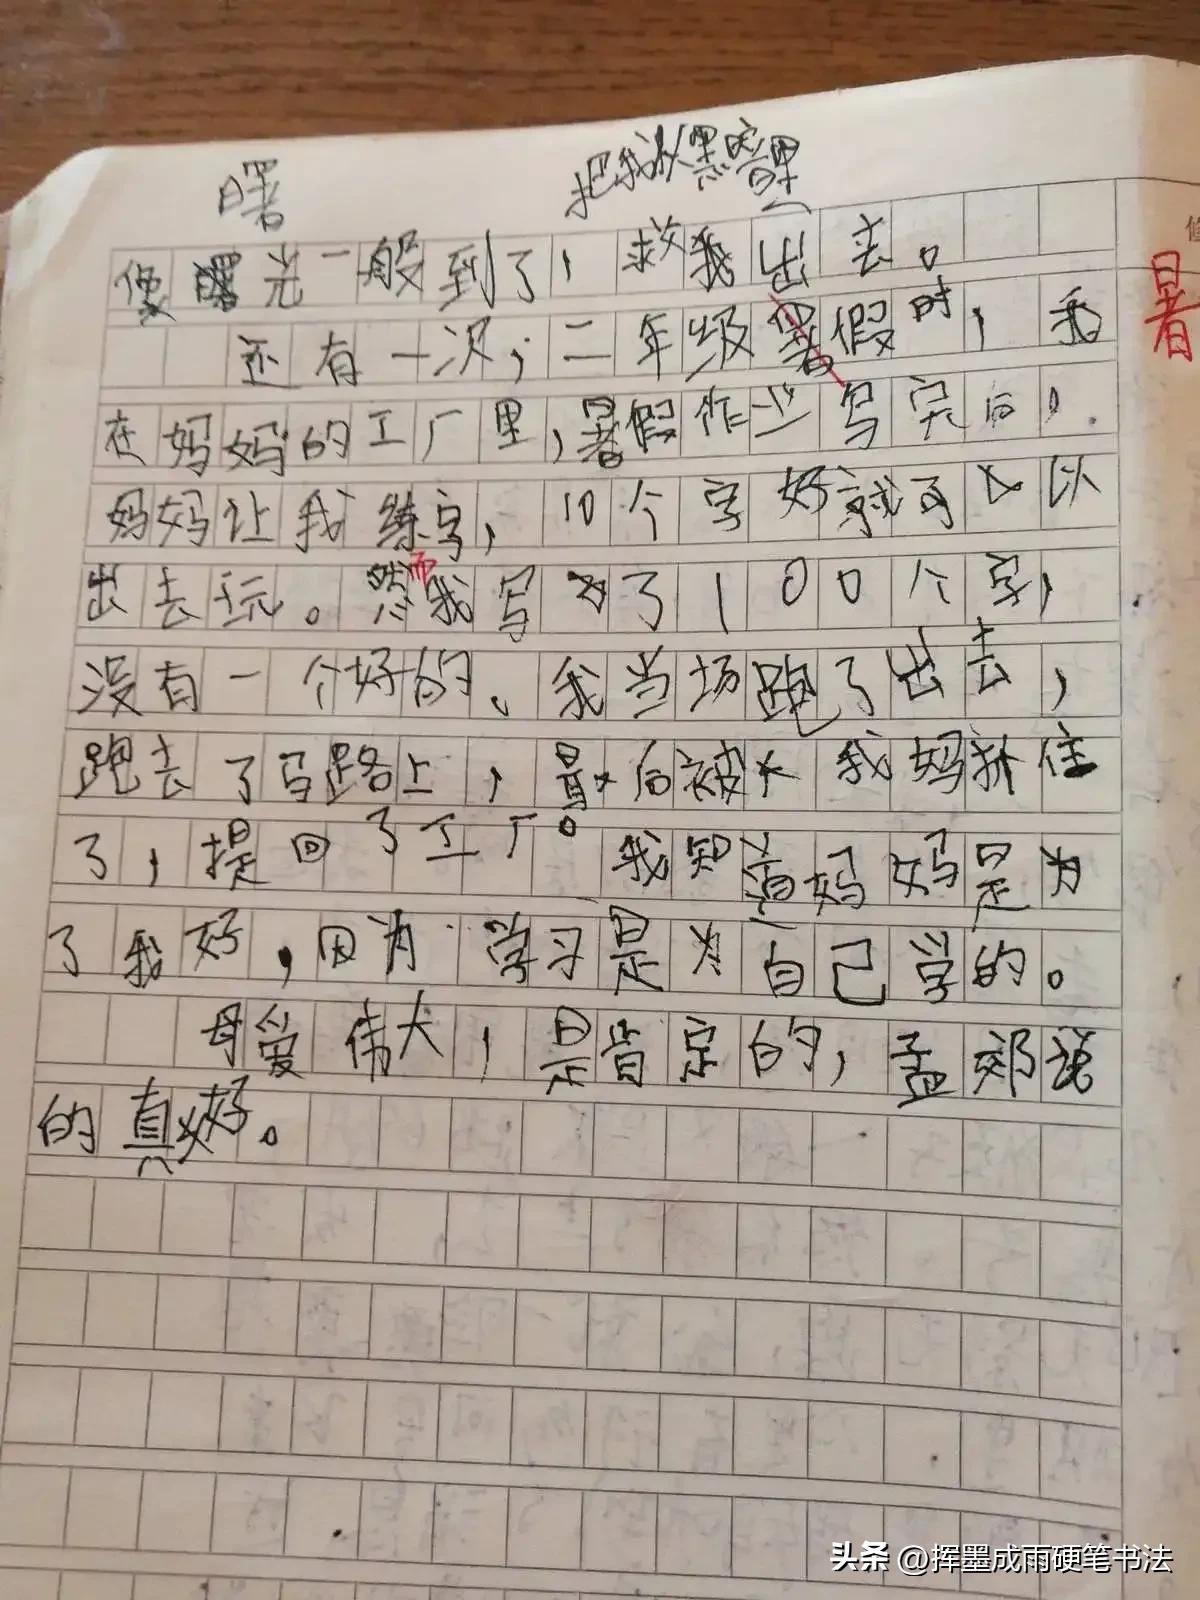 曙
把我从黑暗里
像曙光一般到了，救我出去。
还有一次，二年级暑假时，我
暑
在妈妈的工厂里，暑假作业写完后，
妈妈让我练字，10个字好就可以
出去玩。然而我写了100个字，
没有一个好的。我当场跑了出去，
跑去了马路上，最后被我妈抓住
了，提回了工厂。我知道妈妈是为
了我好，因为学习是为自己学的。
母爱伟大，是肯定的，孟郊说
的真好。
头条 @挥墨成雨硬笔书法